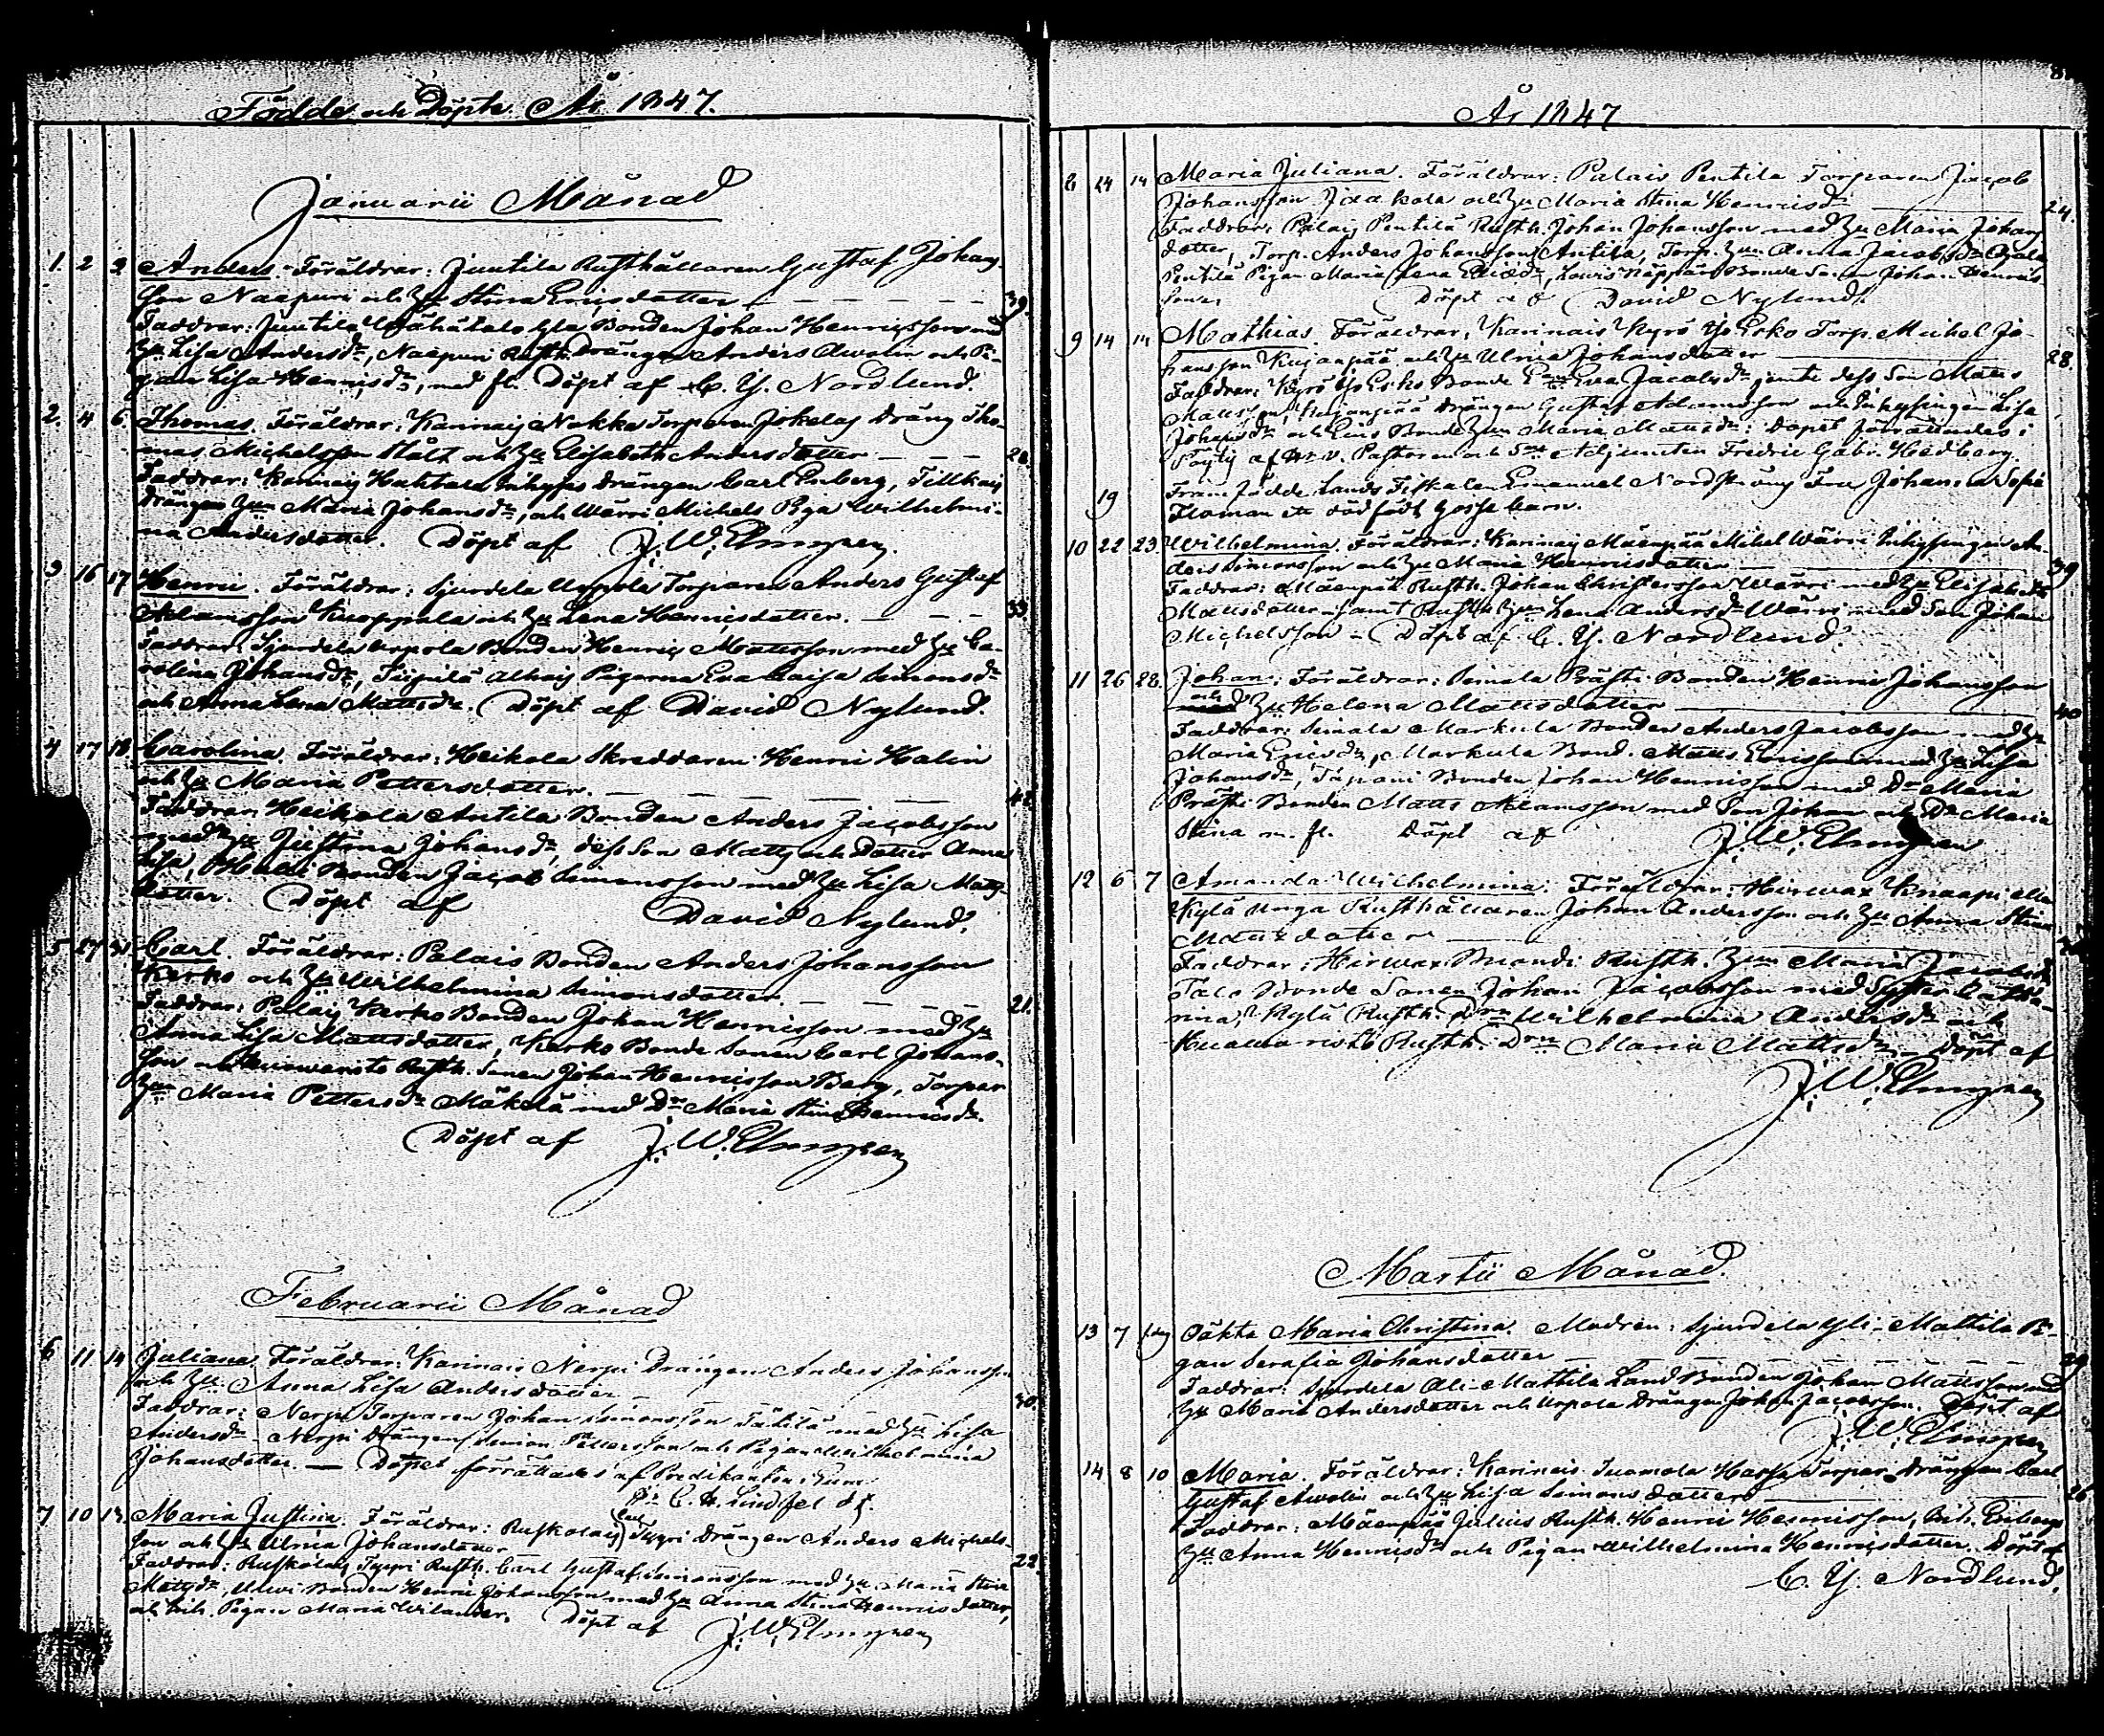 Födde och Döpte År 1847.
Januarii Månad
1. 2 3. Anders. Föräldrar: Juntila Rusthållaren Gustaf Johans-
son Naapuri och Hu Stina Ericsdotter 39.
Faddrar: Juntila Bonden Johan Henricsson med
Hu Lisa Andersdr, Naapuri Rusth. Drängen Anders och Pi-
gan Lisa Henricsdr, med fl. Döpt af C. Y. Nordlund.
2. 4 6. Thomas. Föräldrar: Karinais Nokka Torparen Jokelas Dräng Tho-
mas Michelsson Stålt och Hu Elisabeth Andersdotter
Faddrar: Karinais Huhtara Inhyses Drängen Carl Enberg, Tillkas
Drängen Hun Maria Johansdr, och Wärri Michels Piga Wilhelmi-
na Andersdotter. Döpt af J. W. Elmgren
3 16 17 Henric. Föräldrar: Sjurdela Uppola Torparen Anders Gustaf
Adamsson Knoppala och Hu Lena Henricsdotter. 33.
Faddrar: Sjurdela Uppola Bonden Henric Mattsson med Hu Ca-
rolina Johansdr, Alhais Pigorna Eva Caisa Simonsdr
och Anna Lena Mattsdr. Döpt af David Nylund.
4 17 18 Carolina. Föräldrar: Heikola Skreddaren Henric Halin
och Hu Maria Pettersdotter. 42
Faddrar: Heikola Antila Bonden Anders Jacobsson
med Hu Justina Johansdr, dess Son Matts och Dotter Anna
Lisa, Bonden Jacob Simonsson med Hu Lisa Matts-
dotter. Döpt af David Nylund.
5 27 31 Carl. Föräldrar: Palais Bonden Anders Johansson
Kerko och Hu Wilhelmina Simonsdotter. 21.
Faddrar: Palais Kerko Bonden Johan Henricsson med Hu
Anna Lisa Mattsdotter, Kerko Bonde Sonen Carl Johans-
son och Rusth. Sonen Johan Henricsson Berg, Torpar
Hun Maria Pettersdr Mäkelä med Dr Maria Stina Henricsdr.
Döpt af J. W. Elmgren
Februarii Månad
6 11 14 Juliana. Föräldrar: Karinais Nerpi Drängen Anders Johansson
och Hu Anna Lisa Andersdotter 30.
Faddrar: Nerpi Torparen Johan Simonsson med Hu Lisa
Andersdr Nerpi Drängen Simon Pettersson och Pigan Wilhelmina
Johansdotter. Döpet förrättades af Predikanten
C. H. Lindfelt.
7 10 Maria Justina. Föräldrar: Ruskolais Tyyri Drängen Anders Michels-
son och Hu Ulrica Johansdotter 22
Faddrar: Ruskolais Tyyri Rusth. Carl Gustaf Simonsson med Hu Maria Stina
Mattsdr, Bonden Henric Johansson med Hu Anna Stina Henricsdotter,
och Inh. Pigan Maria Wilander. Döpt af J. W. Elmgren
År 1847
24 14 Maria Juliana. Föräldrar: Palais Pentila Torparen Jacob
Johansson Jaakola och Hu Maria Stina Henricsdr 24.
Faddrar: Palais Pentilä Rusth. Johan Johansson med Hu Maria Johans
dotter, Torp. Anders Johansson Antila, Torp. Hun Anna Jacobsdr Ojala
Pentilä Pigan Maria Lena Bonde Sonen Johan Henrics-
Döpt af David Nylund.
9 14 14 Mathias. Föräldrar: Karinais Kyrö Yli Erko Torp. Michel Jo-
hansson Kujanpää och Hu Ulrica Johansdotter 28.
Faddrar: Kyrö Yli Erko Bonde Eva Jacobsdr jemte dess Son Matts
Mattsson, Kujanpää Drängen Gustaf Adamsson och Inhysingen Lisa
Johansdr och Bonde Hun Maria Mattsdr: Döpet förrättades i
Pöytis af Pastoren och Adjuncten Fredric Gabr. Hedberg.
19 Fram födde Lands Fiskalen Emanuel Nordström Fru Johanna Sofia
Floman ett dödfödt gosse barn.
10 22 23. Wilhelmina. Föräldrar: Karinais Mäenpää Mikel Wärri Inhysingen An-
ders Simonsson och Hu Maria Henricsdotter 39
Faddrar: Mäenpää Rusth. Johan Christersson Wärri med Hu Elisabeth
Mattsdotter samt Rusth. Hun Lena Andersdr Wärri med Son Johan
Michelsson – Döpt af C. Y. Nordlund.
11 26 28. Johan. Föräldrar: Seimala Prästi Bonden Henric Johansson
och Hu Helena Mattsdotter 40
Faddrar: Seimala Markula Bonden Anders Jacobsson med Hu
Maria Ericsdr, Markula Bond. Matts Ericsson med Hu Lisa
Johansdr, Tapani Bonden Johan Henricsson med Dr Maria
Prästi Bonden Matts Adamsson med Son Johan och Dr Maria
Stina m. fl. Döpt af J. W. Elmgren
12 6 7 Amanda Wilhelmina. Föräldrar: Hirwax Knaapi eller
Kylä Unga Rusthållaren Johan Andersson och Hu Anna Stina
Mattsdotter
Faddrar: Hirwax Brandi Rusth. Hun Maria Jacobsdr
Talo Bonde Sonen Johan Jacobsson med Syster Catha-
rina, Kylä Rusth. Drn Wilhelmina Andersdr och
Rusth. Drn Maria Mattsdr – Döpt af
J. W. Elmgren
Martii Månad.
13 7 s.dag Oäkta Maria Christina. Modren: Sjurdela Yli-Mattila Pi-
gan Serafia Johansdotter 29
Faddrar: Sjurdela Ali-Mattila Land Bonden Johan Mattsson med
Hu Maria Andersdotter och Uppola Drängen Johan Jacobsson. Döpt af
J. W. Elmgren
14 8 10 Maria. Föräldrar: Karinais Suomola Hassa Torpar Drängen Carl
Gustaf och Hu Lisa Simonsdotter 26
Faddrar: Mäenpää Julius Rusth. Henric Henricsson, Inh. Enbergs
Hu Anna Henricsdr och Pigan Wilhelmina Henricsdotter. Döpt af
C. Y. Nordlund.